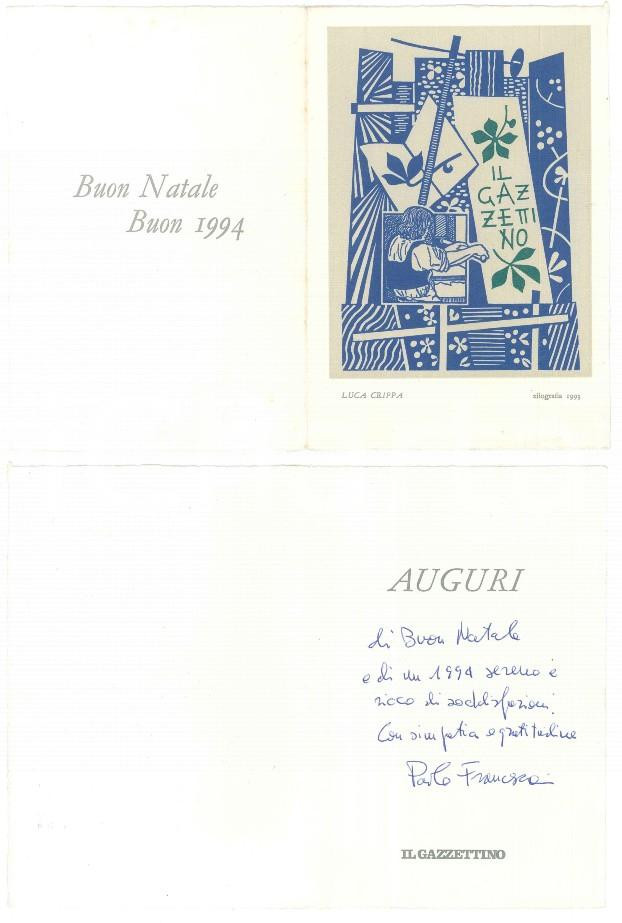 Buon Natale
Buon 1994
IL
GAZ
ZETTI
NO
LUCA CRIPPA
xilografia 1993
AUGURI
di Buon Natale
e di un 1994 sereno e
ricco di soddisfazioni!
Con simpatia e gratitudine
Paolo
IL GAZZETTINO